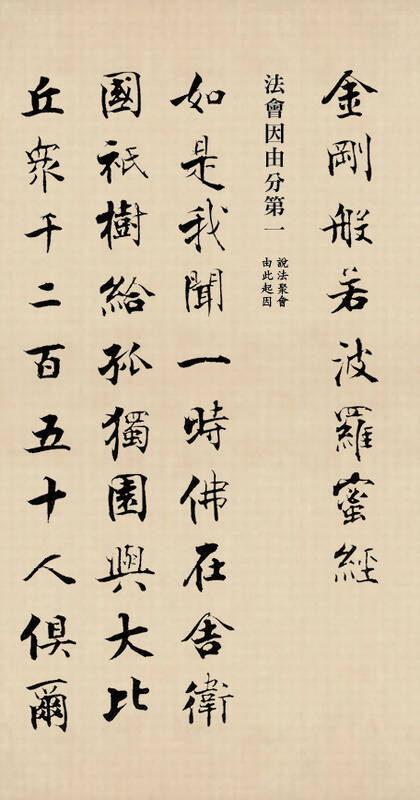 金剛般若波羅蜜經
法會因由分第一
說法聚會
由此起因
如是我聞一時佛在舍衛
國祇樹給孤獨園與大比
丘眾千二百五十人俱爾